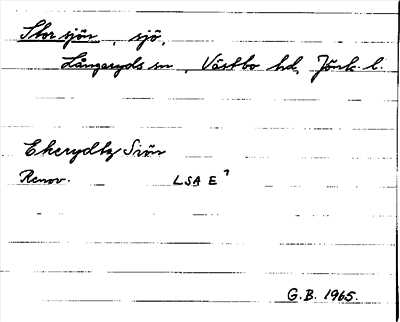 Storsjön, sjö,
Långaryds sn, Västbo hd, Jönk. l.
Ekerydtz Siön
Renov. LSA E 7
G.B. 1965.